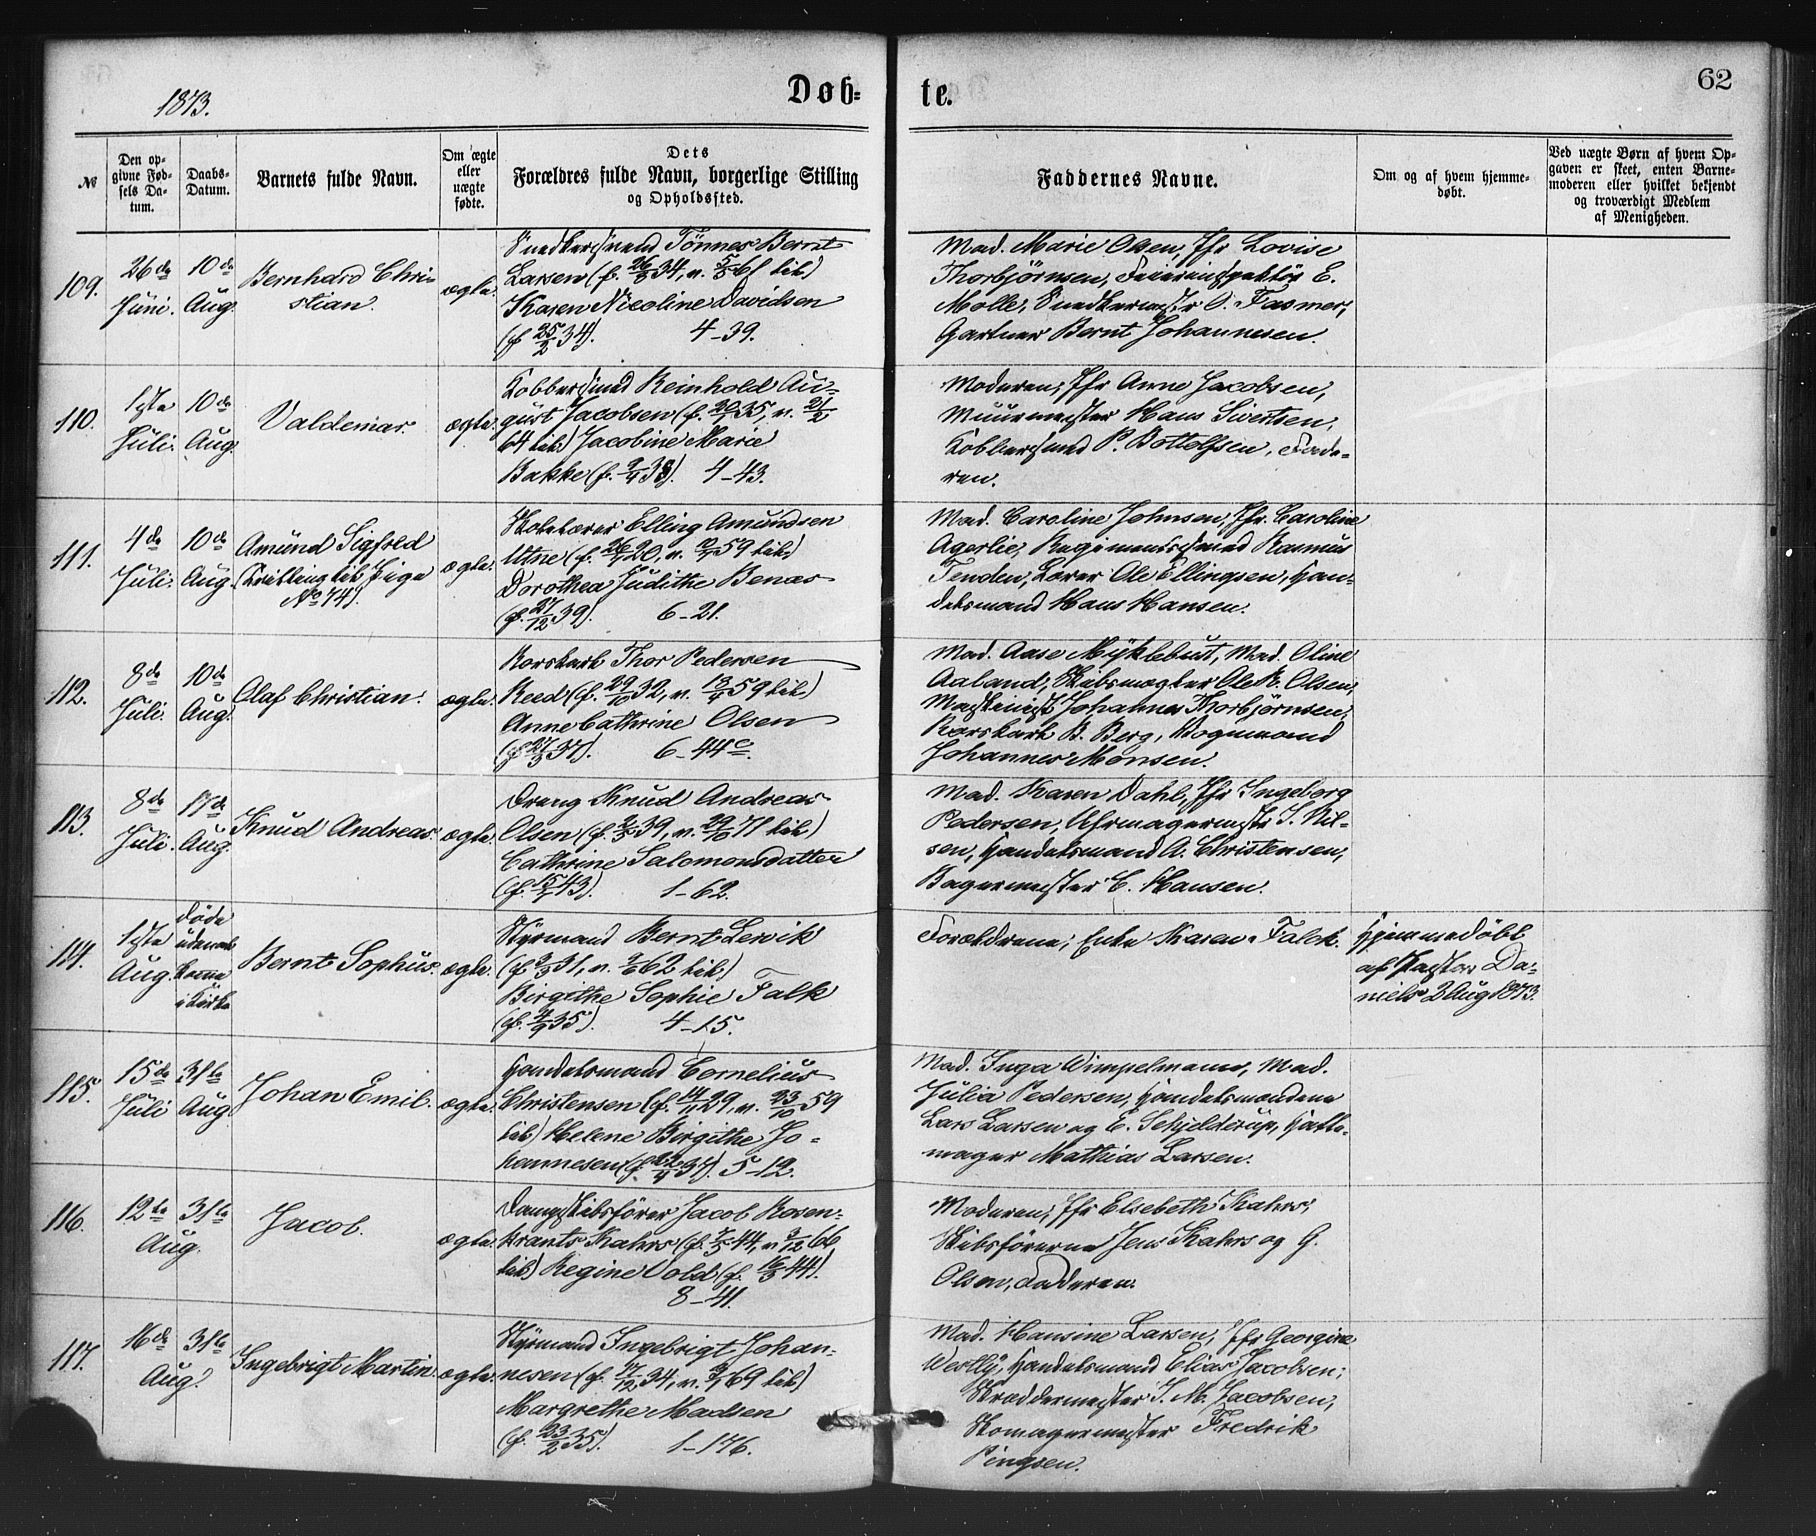 1873.
Døb-
te.
62
№
Den op-
givne Fød-
sels Da-
tum.
Daabs-
Datum.
Barnets fulde Navn.
Om ægte
eller
uægte
fødte.
Dets
Forældres fulde Navn, borgerlige Stilling
og Opholdssted.
Faddernes Navne.
Om og af hvem hjemme-
døbt.
Ved uægte Børn af hvem Op-
gaven er skeet, enten Barne-
moderen eller hvilket bekjendt
og troværdigt Medlem
af Menigheden.
109.
26de
Juni.
10de
Aug.
Bernhard Chri-
stian.
ægte.
Snedkersvend Tönnes Bernt
Larsen (f. 26/3 34, v. 5/5 61 til)
Karen Nicoline Davidsen
(f. 25/2 34). 4-39.
Mad. Marie Olsen, Jfr Lovise
Thorbjörnsen, E.
Molle, Snedkermester O. Fasmer,
Gartner Bernt Johannesen.
110.
1ste
Juli.
10de
Aug.
Valdemar.
ægte.
Kobbersmed Reinhold Au-
gust Jacobsen (f. 35, v. 21/2
64 til) Jacobine Marie
Bakke (f. 38). 4-43.
Moderen, Jfr Anne Jacobsen,
Muurmester Hans Sivertsen,
Kobbersmed P. Bottolfsen, Fade-
ren.
111.
4de
Juli.
10de
Aug.
Amünd Sigfred
(Tvilling til Pige
No 74).
ægte.
Skolelærer Elling Amundsen
Utne (f. 20, v. 59 til)
Dorothea Judithe Benæs
(f. 27/12 39). 6-21.
Mad. Caroline Johnsen, Jfr. Caroline
Agerlie, Regimentssmed Rasmus
Tenden, Lærer Ole Ellingsen, Han-
delsmand Hans Hansen.
112.
8de
Juli.
10de
Aug.
Olaf Christian.
ægte.
Korskarl Thor Pedersen
Reed (f. 29/10 32, v. 13/4 59 til)
Anne Cathrine Olsen
(f. 27/3 37). 6-44c.
Mad. Aase Myklebust, Mad. Oline
Aaland, Skibsmægler Ole R. Olsen,
Maskinist Johannes Thorbjörnsen,
Korskarl B. Berg, Vognmand
Johannes Monsen.
113.
8de
Juli.
17de
Aug.
Knud Andreas.
ægte.
Dreng Knud Andreas
Olsen (f. 39, v. 29/10 71 til)
Cathrine Salomonsdatter
(f. 43). 1-62.
Mad. Karen Dahl, Jfr Ingeborg
Pedersen, Uhrmagermester J. Nil-
sen, Handelsmand A. Christensen,
Bagermester C. Hansen.
114.
1ste
Aug.
döde
uden at
komme
i Kirke
Bernt Sophus.
ægte.
Styrmand Bernt Lervik
(f. 31, v. 62 til)
Birgithe Sophie Falk
(f. 35). 4-15.
Forældrene, Enke Karen Falck.
Hjemmedöbt
af Pastor Da-
niels 2 Aug 1873.
115.
15de
Juli
31te
Aug.
Johan Emil.
ægte.
Handelsmand Cornelius
Christensen (f. 14/11 29, v. 23/10 59
til) Helene Birgithe Jo-
hannesen (f. 22/4 37). 5-12.
Mad. Inga Wimpelmann, Mad.
Julia Pedersen, Handelsmændene
Lars Larsen og E. Schjelderup, Hatte-
mager Mathias Larsen.
116.
12te
Aug.
31te
Jacob.
ægte.
Dampskibsförer Jacob Rosen-
krants Kahrs (f. 44, v. 9/12 66
til) Regine Dold (f. 16/3 44).
8-41.
Moderen, Jfr Elsebeth Kahrs,
Skibsförerne Jens Kahrs og G.
Olsen, Faderen.
117.
16de
Aug.
31te
Ingebrigt Martin.
ægte.
Styrmand Ingebrigt Johan-
nesen (f. 17/12 34, v. 69 til)
Margrethe Madsen
(f. 23/2 35). 1-176.
Mad. Hansine Larsen, Jfr Georgine
Westly, Handelsmand Elias Jacobsen,
Skræddermester J. M. Jacobsen,
Skomagermester Fredrik